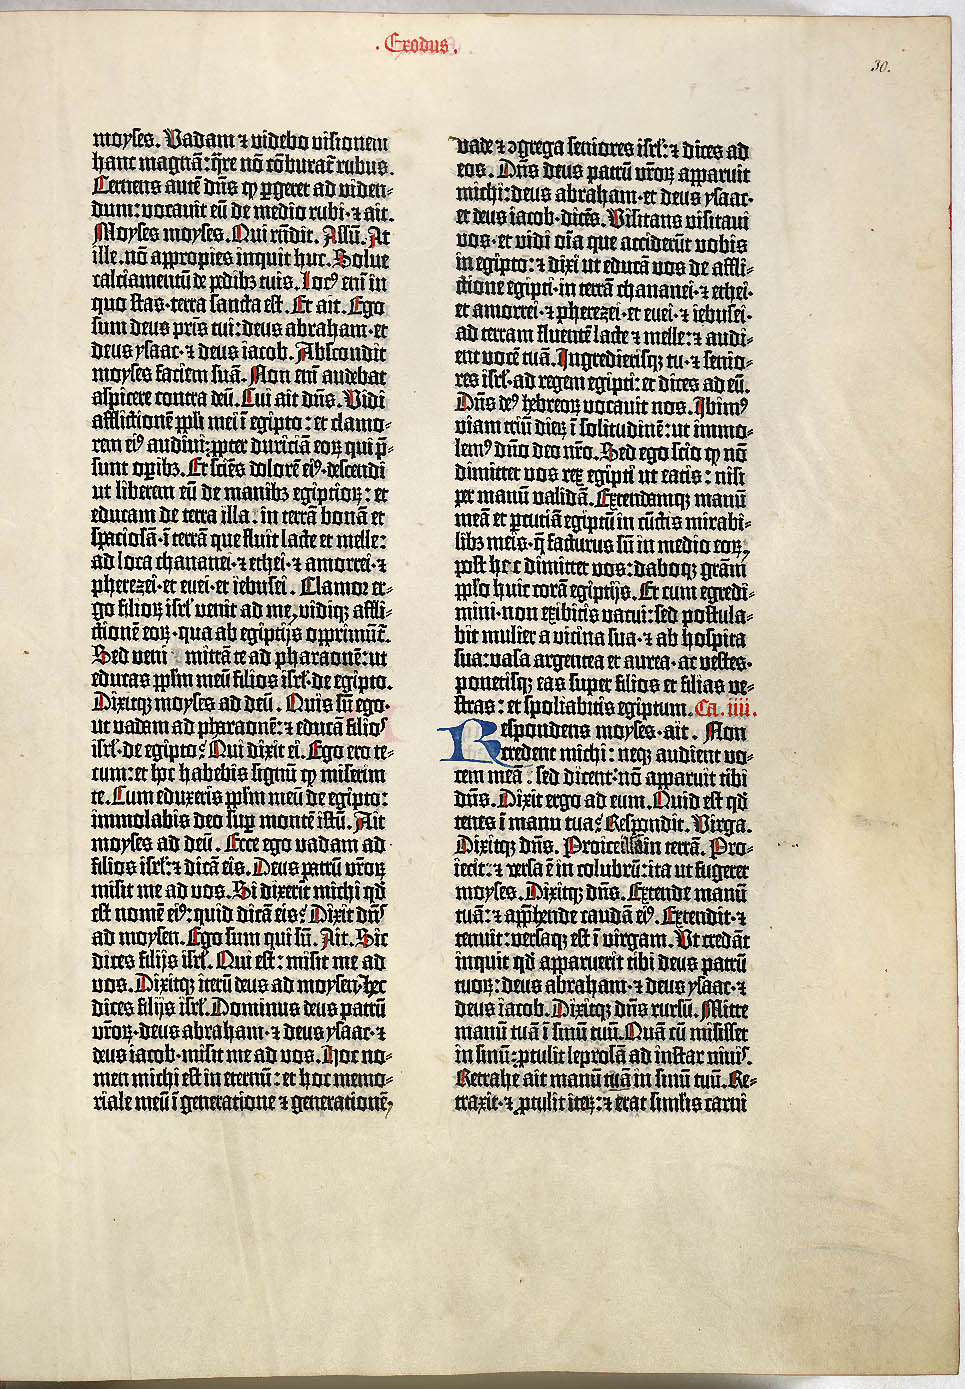 . Exodus .
30.
moyses. Vadam ⁊ videbo visionem
hanc magnā: q̄re nō cōburat᷑ rubus.
Cernens autē dn̄s ꝙ ꝑgeret ad viden⸗
dum: vocavit eū de medio rubi· ⁊ ait.
Moyses moyses. Qui rn̄dit. Assū. At
ille. nō appropies inquit huc. Solve
calciamentū de pedibꝫ tuis. Locꝰ eni in
quo stas· terra sancta est. Et ait. Ego
sum deus pr̄is tui: deus abraham· et
deus ysaac· ⁊ deus iacob. Abscondit
moyses faciem suā. Non eni audebat
aspicere contra deū. Cui ait dn̄s. Vidi
afflictionē ppl̄i mei ī egipto: et clamo⸗
rem eiꝰ audivi: ꝓpter duriciā eoꝝ qui p̄⸗
sunt oꝑibꝫ. Et sciēs dolorē eiꝰ· descendi
ut liberem eū de manibꝫ egiptioꝝ: et
educam de terra illa: in terrā bonā et
spaciosā· ī terrā que fluit lacte et melle:
ad loca chananei· ⁊ ethei· ⁊ amorrei· ⁊
pherezei· et evei· et iebusei. Clamor er⸗
go filioꝝ isrl̄ venit ad me, vidiqꝫ affli⸗
ctionē eoꝝ· qua ab egiptijs opprimūt᷑.
Sed veni mittā te ad pharaonē: ut
educas ppl̄m meū filios isrl̄· de egipto.
Dixitqꝫ moyses ad deū. Quis sū ego·
ut vadam ad pharaonē: ⁊ educā filios
isrl̄· de egipto? Qui dixit ei. Ego ero te⸗
cum: et hoc habebis signū ꝙ miserim
te. Cum eduxeris ppl̄m meū de egipto:
immolabis deo suꝑ montē istū. Ait
moyses ad deū. Ecce ego vadam ad
filios isrl̄: ⁊ dicā eis. Deus patrū vr̄oꝝ
misit me ad vos. Si dixerit michi qd̄
est nomē eiꝰ: quid dicā eis? Dixit dn̄s
ad moysen. Ego sum qui sū. Ait. Sic
dices filijs isrl̄. Qui est: misit me ad
vos. Dixitqꝫ iterū deus ad moysen· hec
dices filijs isrl̄. Dominus deus patrū
vr̄oꝝ· deus abraham· ⁊ deus ysaac· ⁊
deus iacob· misit me ad vos. Hoc no⸗
men michi est in eternū: et hoc memo⸗
riale meū ī generatione ⁊ generationē,
vade ⁊ ꝯgrega seniores isrl̄: ⁊ dices ad
eos. Dn̄s deus patrū vr̄oꝝ apparuit
michi: deus abraham· et deus ysaac·
et deus iacob· dicēs. Visitans visitavi
vos· et vidi oīa que acciderūt vobis
in egipto: ⁊ dixi ut educā vos de affli⸗
ctione egipti· in terrā chananei· ⁊ ethei·
et amorrei· ⁊ pherezei· et evei· ⁊ iebusei·
ad terram fluentē lacte ⁊ melle: ⁊ audi⸗
ent vocē tuā. Ingredierisqꝫ tu· ⁊ senio⸗
res isrl̄· ad regem egipti: et dices ad eū.
Dn̄s deꝰ hebreoꝝ vocavit nos. Ibimꝰ
viam triū dieꝝ ī solitudinē: ut immo⸗
lemꝰ dn̄o deo nr̄o. Sed ego scio ꝙ nō
dimittet vos rex egipti ut eatis: nisi
per manū validā. Extendamqꝫ manū
meā et ꝑcutiā egiptū in cūctis mirabi⸗
libꝫ meis· q̄ facturus sū in medio eoꝝ,
post hec dimittet vos: daboqꝫ grām
ppl̄o huic corā egiptijs. Et cum egredi⸗
mini· non exibitis vacui: sed postula⸗
bit mulier a vicina sua· ⁊ ab hospita
sua: vasa argentea et aurea· ac vestes·
ponetisqꝫ eas super filios et filias ve⸗
stras: et spoliabitis egiptum. Ca. iiii.
Respondens moyses· ait. Non
credent michi: neqꝫ audient vo⸗
cem meā: sed dicent· nō apparuit tibi
dn̄s. Dixit ergo ad eum. Quid est qd̄
tenes ī manu tua? Respondit. Virga.
Dixitqꝫ dn̄s. Proice illā in terrā. Pro⸗
iecit: ⁊ versa ē in colubrū: ita ut fugeret
moyses. Dixitqꝫ dn̄s. Extende manū
tuā: ⁊ apprehende caudā eiꝰ. Extendit· ⁊
tenuit: versaqꝫ est ī virgam. Ut credāt
inquit qd̄ apparuerit tibi deus patrū
tuoꝝ: deus abraham· ⁊ deus ysaac· ⁊
deus iacob. Dixitqꝫ dn̄s rursū. Mitte
manū tuā ī sinū tuū. Quā cū misisset
in sinū: ꝓtulit leprosā ad instar nivis.
Retrahe ait manū tuā in sinū tuū. Re⸗
traxit· ⁊ ꝓtulit iteꝝ: ⁊ erat similis carni